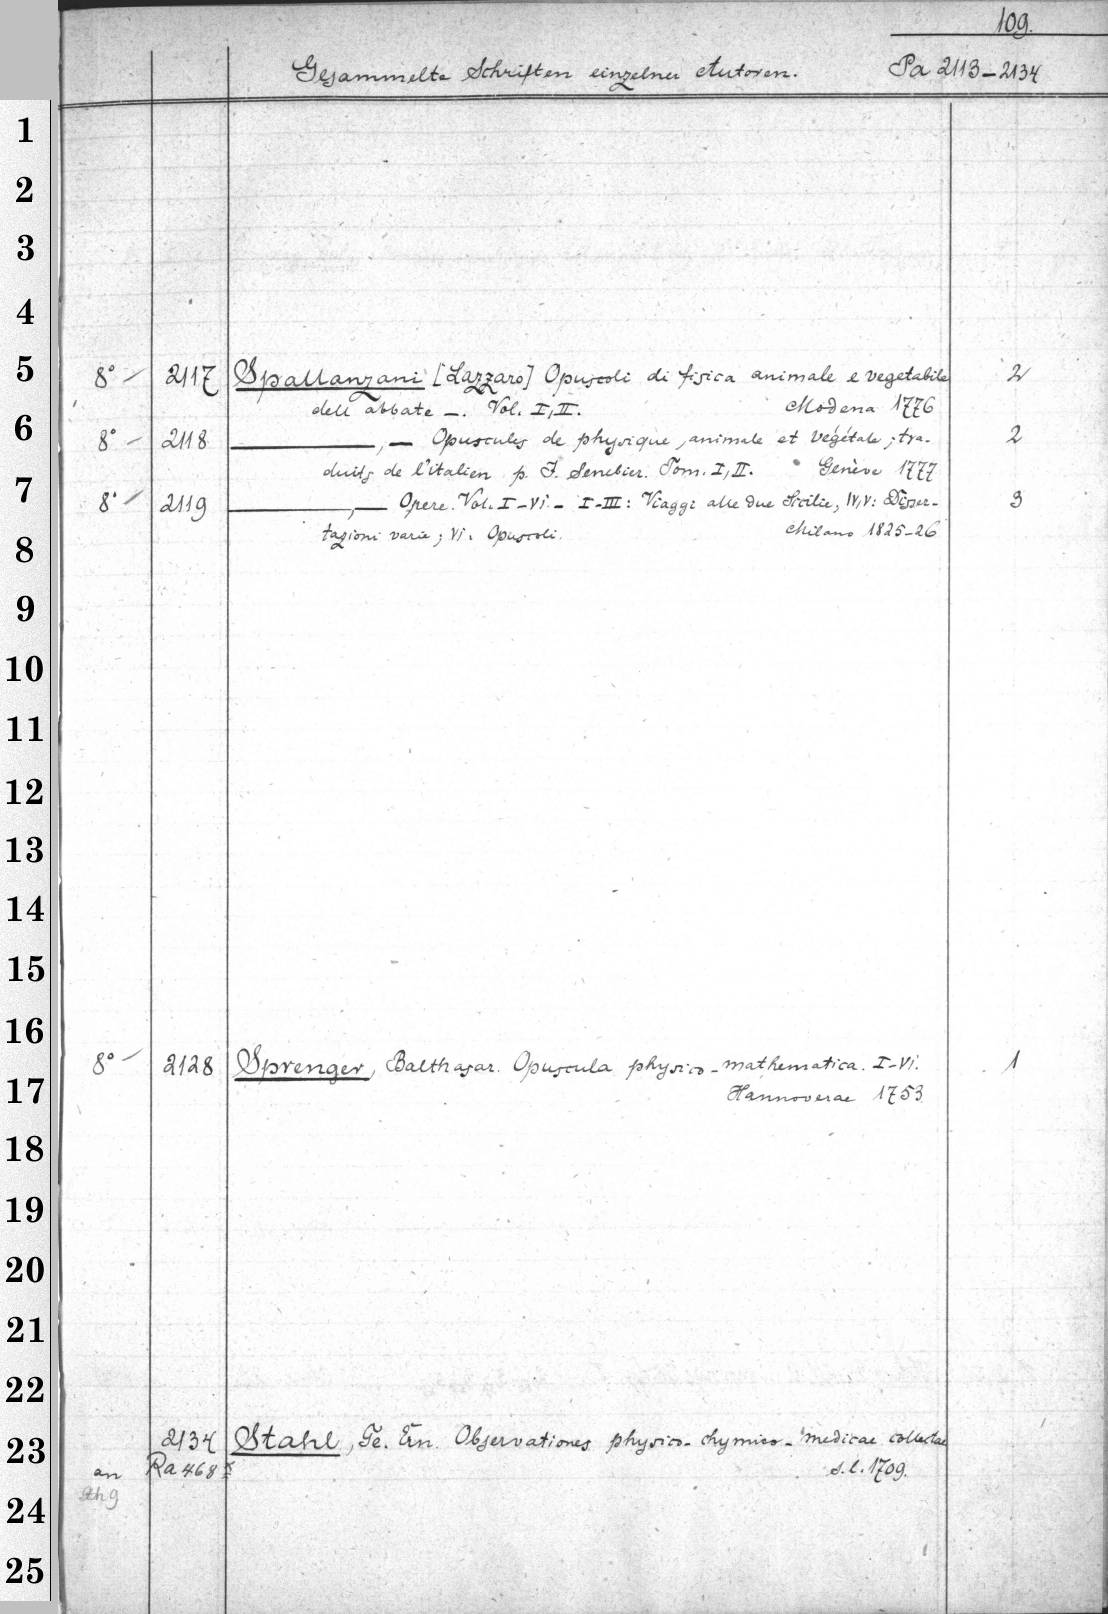 109.
Gesammelte Schriften einzelner Autoren. Pa 2113-2134
1
2
3
4
5
8° - 2117 Spallanzani [Lazzaro] Opuscoli di fisica animale e vegetabile 2
dell' abbate -. Vol. I, II. Modena 1776
6
8° - 2118 ———, — Opuscules de physique, animale et végétale; tra- 2
duits de l'italien p. J. Senebier. Tom. I, II. Genève 1777
7
8° - 2119 ———, — Opere. Vol. I-VI. - I-III: Viaggi alle due Sicilie, IV, V: Disser- 3
tazioni varie; VI. Opuscoli. Milano 1825-26
8
9
10
11
12
13
14
15
16
8° - 2128 Sprenger, Balthasar. Opuscula physico-mathematica. I-VI. 1
17
Hannoverae 1753
18
19
20
21
22
2134 Stahl, Ge. Ern. Observationes physico-chymico-medicae collectae
23
an Ra 468 s.l. 1709.
24
25